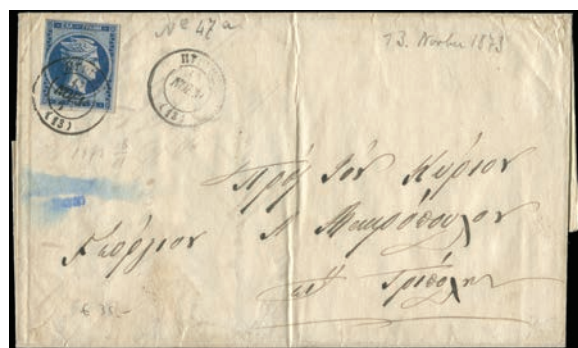 Nº 47a
13. Novber 1873
(13)
(13)
Πρὸς τὸν Κύριον
Γεώργιον Λ Μακρόπουλον
εἰς Τρίπολιν
€ 35.-